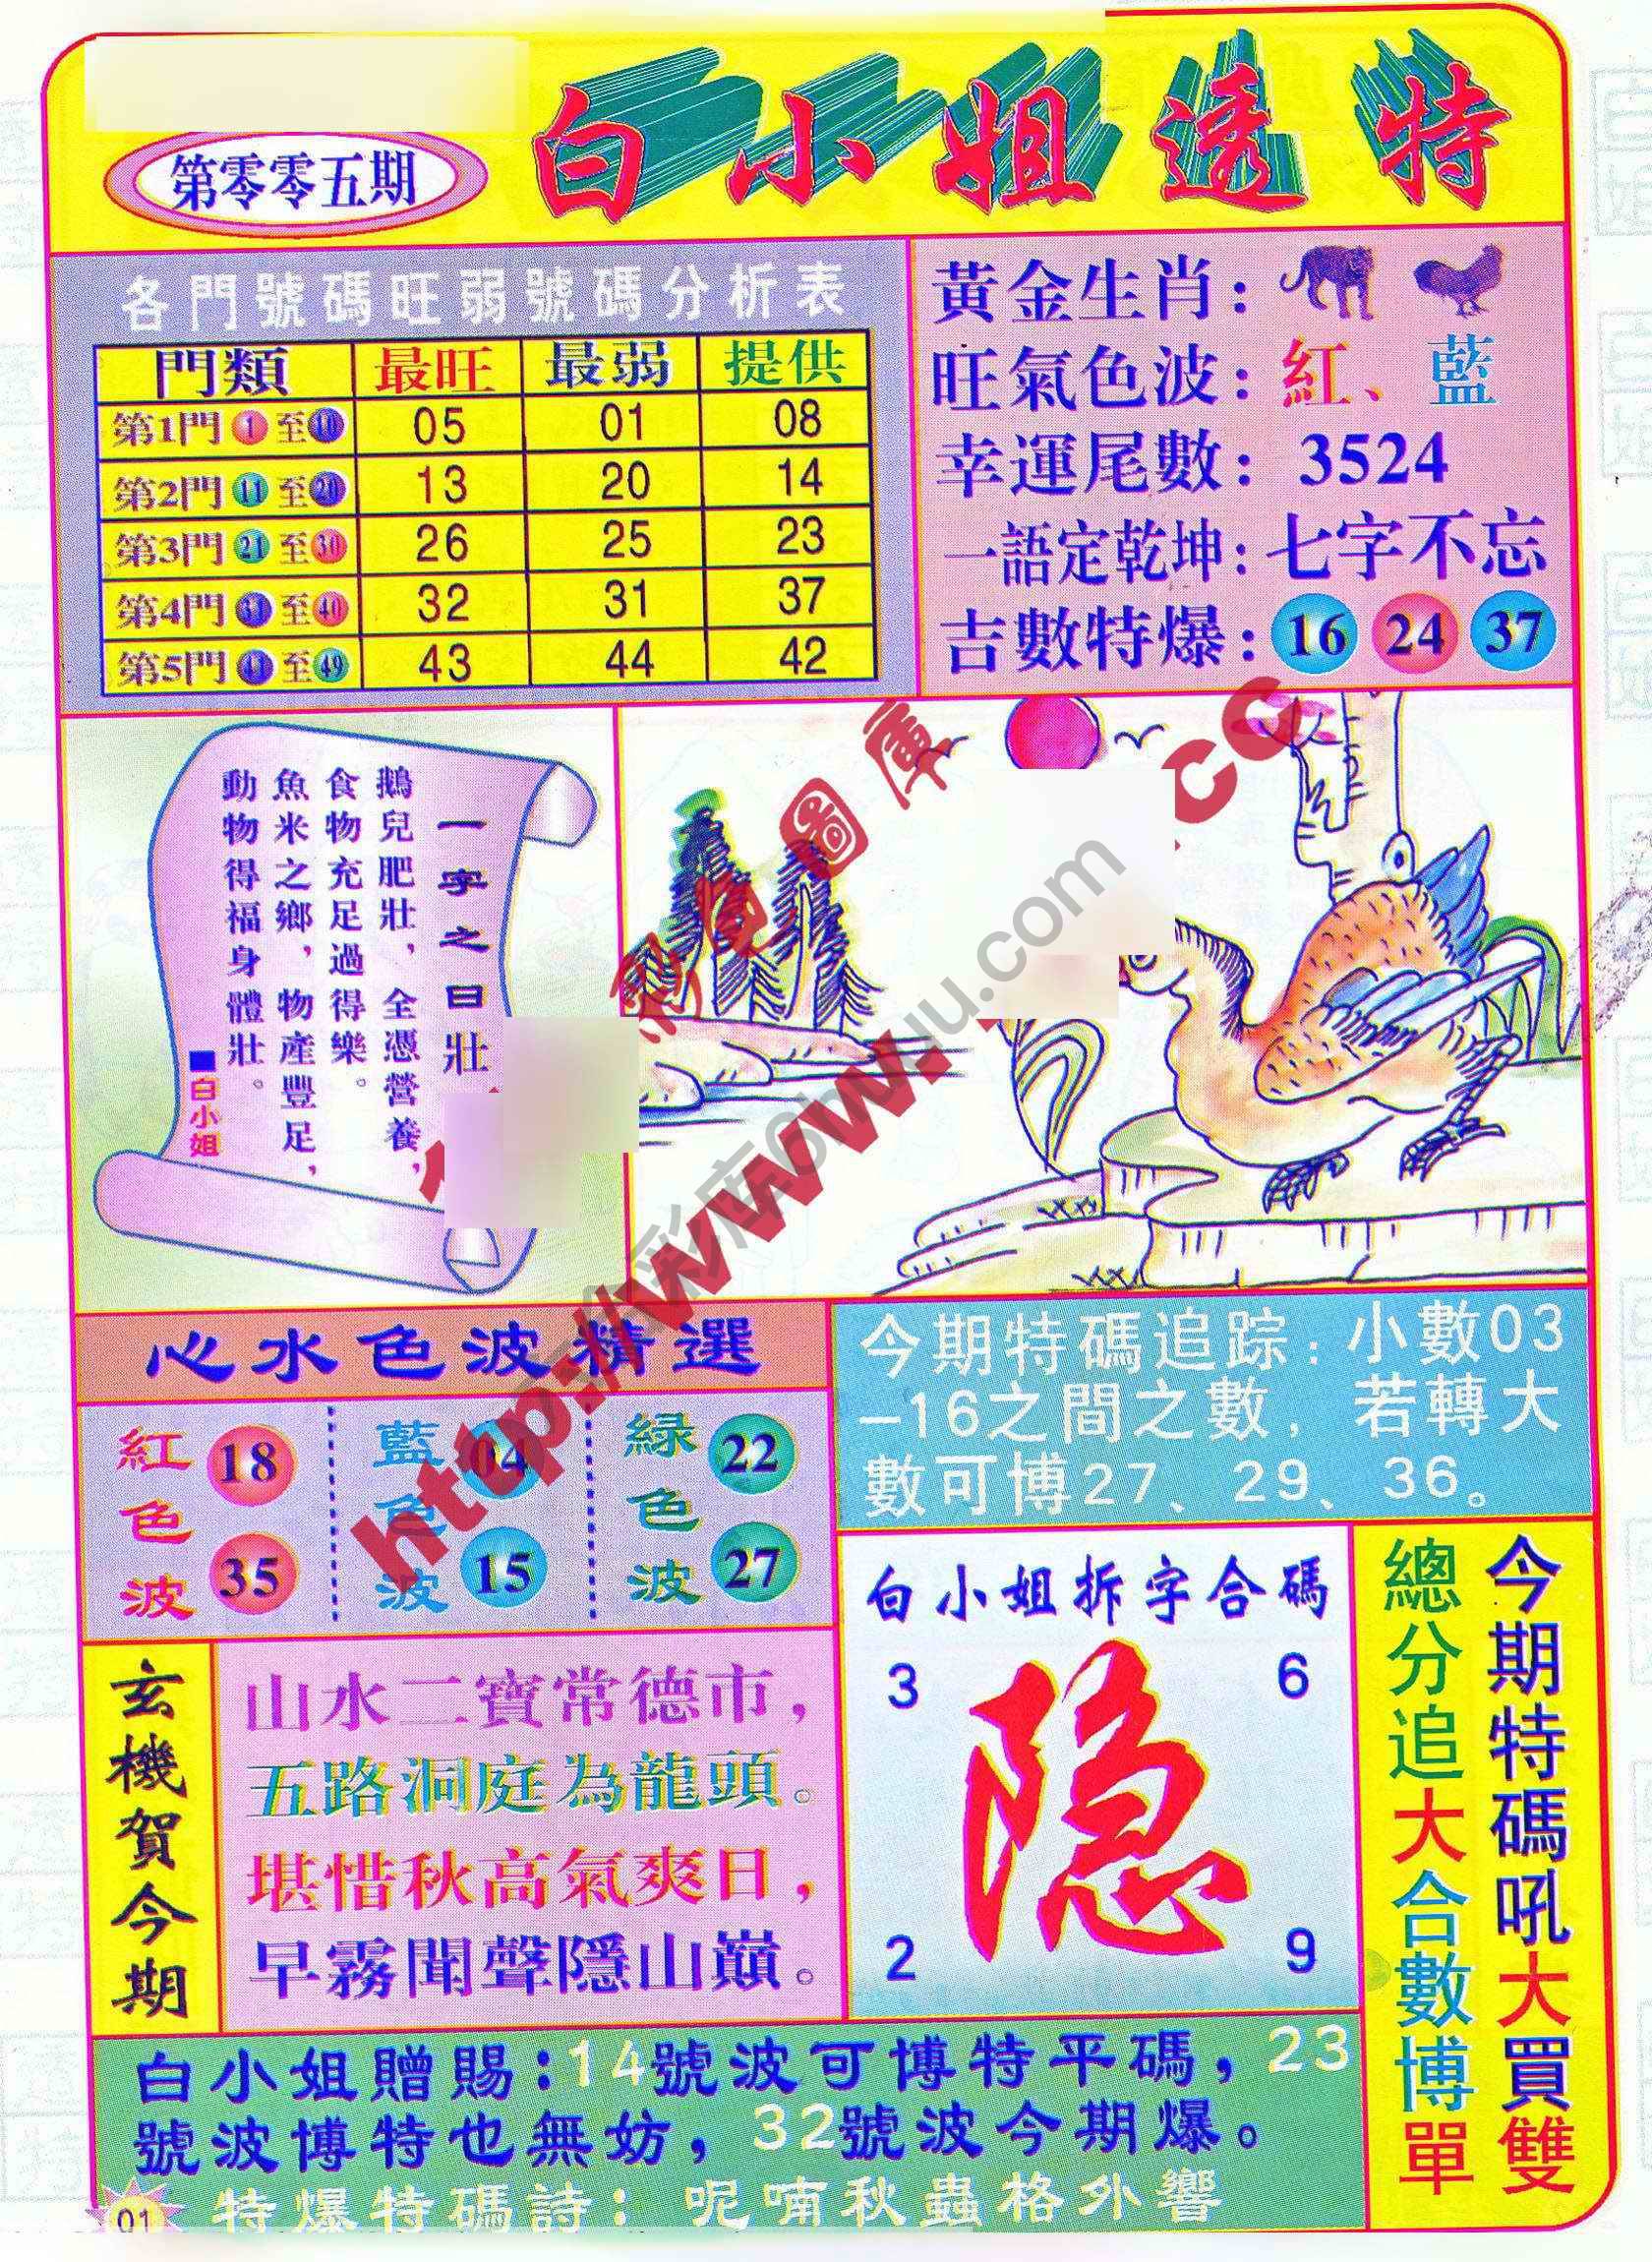 第零零五期
白小姐透特
各門號碼旺弱號碼分析表
門類 最旺 最弱 提供
第1門 1 至 10 05 01 08
第2門 11 至 20 13 20 14
第3門 21 至 30 26 25 23
第4門 31 至 40 32 31 37
第5門 41 至 49 43 44 42
黃金生肖：
旺氣色波：紅、藍
幸運尾數：3524
一語定乾坤：七字不忘
吉數特爆：16 24 37
一字之曰壯
鵝兒肥壯，全憑營養，
食物充足過得樂。
魚米之鄉，物產豐足，
動物得福身體壯。
■白小姐
彩圖庫
http://www.
.cc
心水色波精選
紅色波 18 35
藍色波 04 15
綠色波 22 27
今期特碼追踪：小數03
－16之間之數，若轉大
數可博27、29、36。
玄機賀今期
山水二寶常德市，
五路洞庭為龍頭。
堪惜秋高氣爽日，
早霧聞聲隱山巔。
白小姐拆字合碼
3 6
隐
2 9
今期特碼吼大買雙
總分追大合數博單
白小姐贈賜：14號波可博特平碼，23
號波博特也無妨，32號波今期爆。
特爆特碼詩：呢喃秋蟲格外響
01